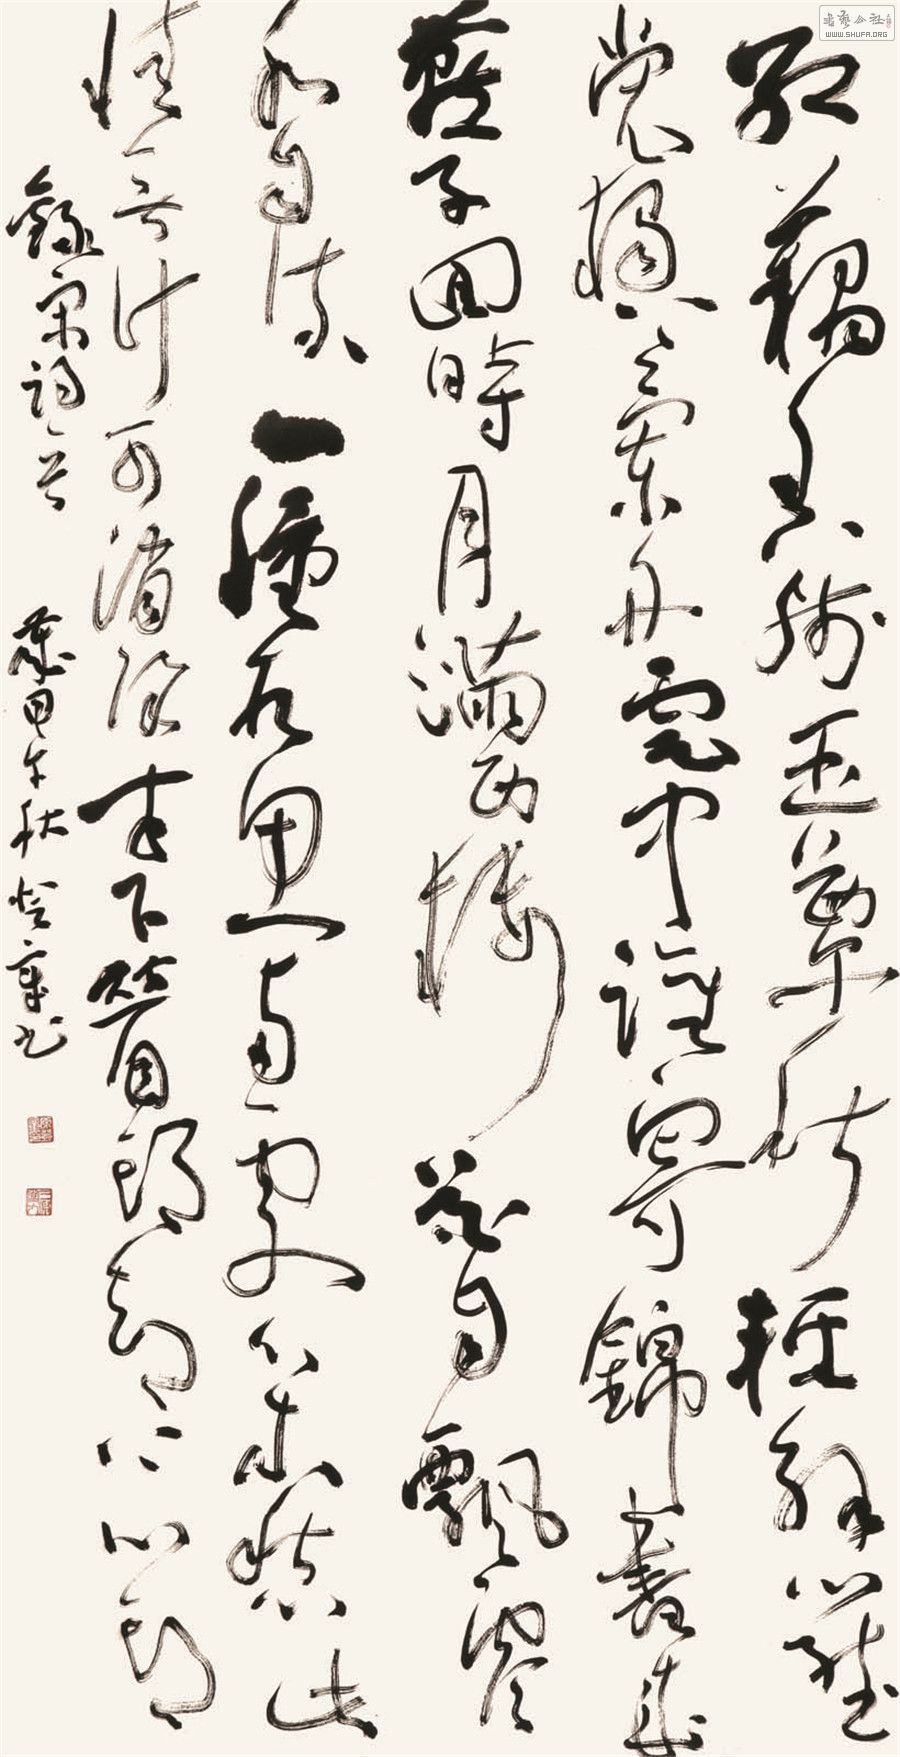 紅藕香殘玉簟秋輕解羅
裳獨上蘭舟雲中誰寄錦書來
雁字回時月滿西樓花自飄零
水自流一種相思兩處閒愁此
情無計可消除才下眉頭却上心頭
錄宋詞一首 歲甲午秋
書藝公社
WWW.SHUFA.ORG